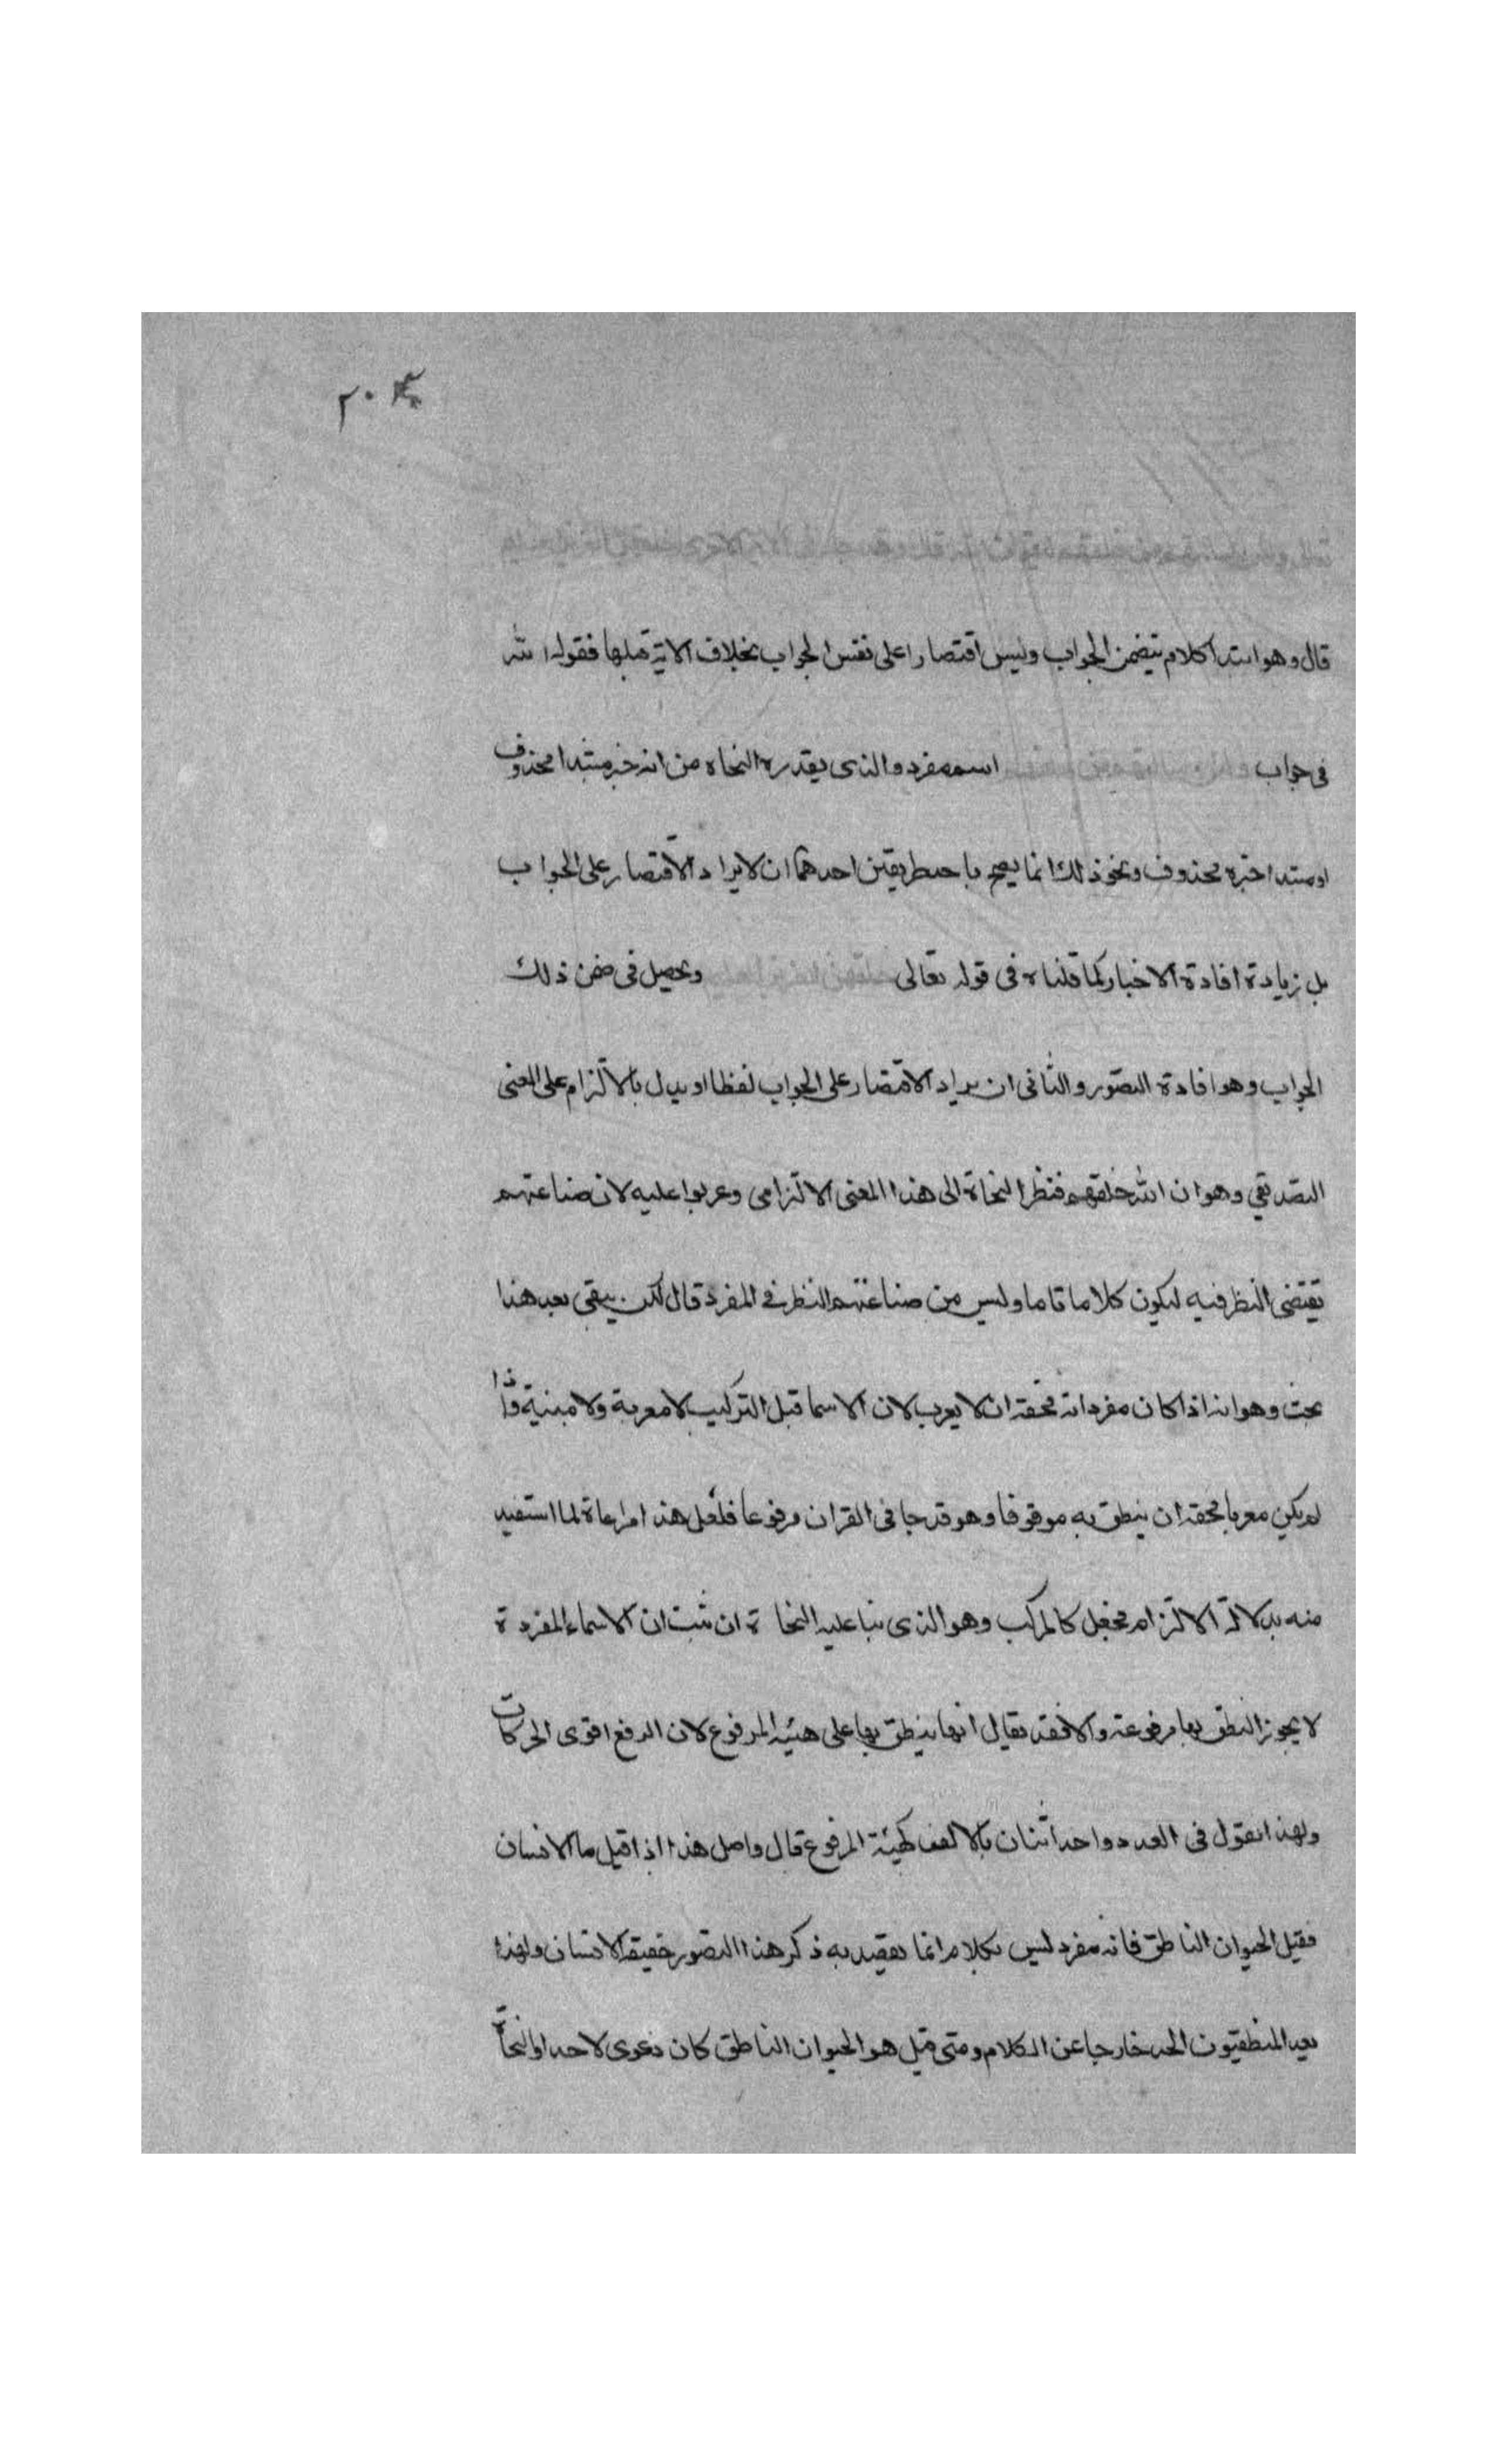 ٢٠٤
قال وهو ابتدا كلام يتضمن الجواب وليس اقتصارا على نفس الجواب بخلاف الاية قبلها فقوله الله
فى جواب اسم مفرد والذى يقدره النحاه من انه خبر مبتدا محذوف
او مبتدا خبره محذوف ونحو ذلك انما يصح باحد طريقين احدهما ان لا يراد الاقتصار على الجواب
بل زيادة افادة الاخبار كما قلناه فى قوله تعالى ويحصل فى ضمن ذلك
الجواب وهو افادة التصور والثانى ان يراد الاقتصار على الجواب لفظا او يدل بالالتزام على المعنى
التصديقي وهو ان الله خلقهم فنظر النحاة الى هذا المعنى الالتزامى وعربوا عليه لان صناعتهم
تقتضى النظر فيه ليكون كلاما تاما وليس من صناعتهم النظر فى المفرد قال لكن يبقى بعد هذا
بحث وهو انه اذا كان مفردا فحقه ان لا يعرب لان الاسما قبل التركيب لا معربة ولا مبنية واذا
لم يكن معربا فحقه ان ينطق به موقوفا وهو قد جا فى القران مرفوعا فلعل هذا مراعاة لما استفيد
منه بدلالة الالتزام فجعل كالمركب وهو الذى بنا عليه النحا ة ان ثبت ان الاسماء المفردة
لا يجوز النطق بها مرفوعة والا فقد يقال انها ينطق بها على هيئه المرفوع لان الرفع اقوى الحركات
ولهذا نقول فى العدد واحد اثنان بالالف كهيئة المرفوع قال واصل هذا اذا قيل ما الانسان
فقيل الحيوان الناطق فانه مفرد ليس بكلام انما يقصد به ذكر هذا التصور حقيقة الانسان ولهذا
يعد المنطقيون الحد خارجا عن الكلام ومتى قيل هو الحيوان الناطق كان دعوى لا حدا والنحاة